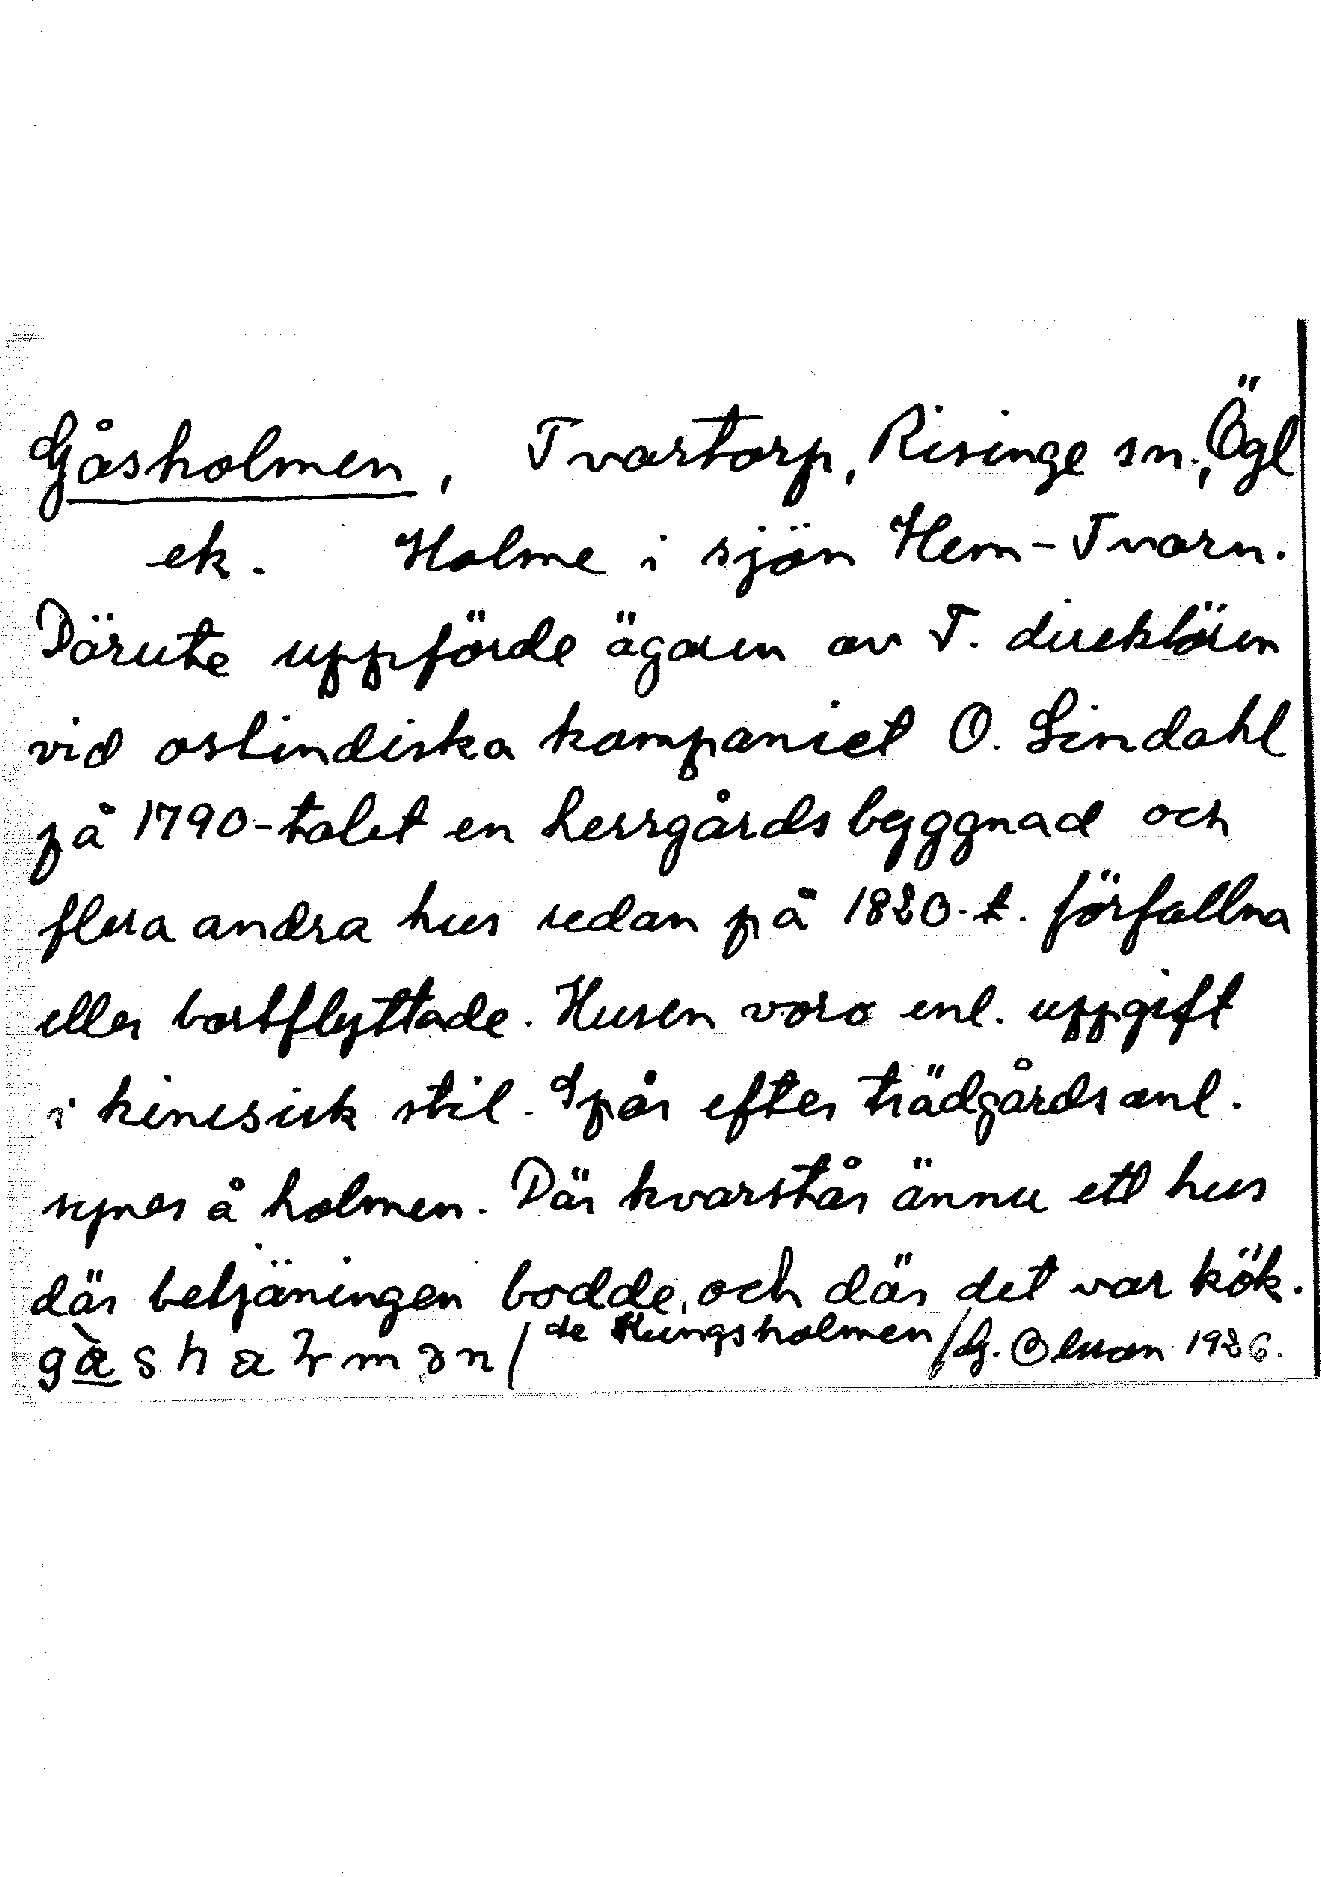 Gåsholmen, Tvartorp, Risinge sn., Ögl
ek. Holme i sjön Hem-Tvarn.
Därute uppförde ägaren av T. direktören
vid ostindiska kompaniet O. Lindahl
på 1790-talet en herrgårdsbyggnad och
flera andra hus redan på 1820-t. förfallna
eller bortflyttade. Husen voro enl. uppgift
i kinesisk stil. Spår efter trädgårdsanl.
synes å holmen. Där kvarstår ännu ett hus
där betjäningen bodde, och där det var kök.
de Kungsholmen / G. Olsson 1926.